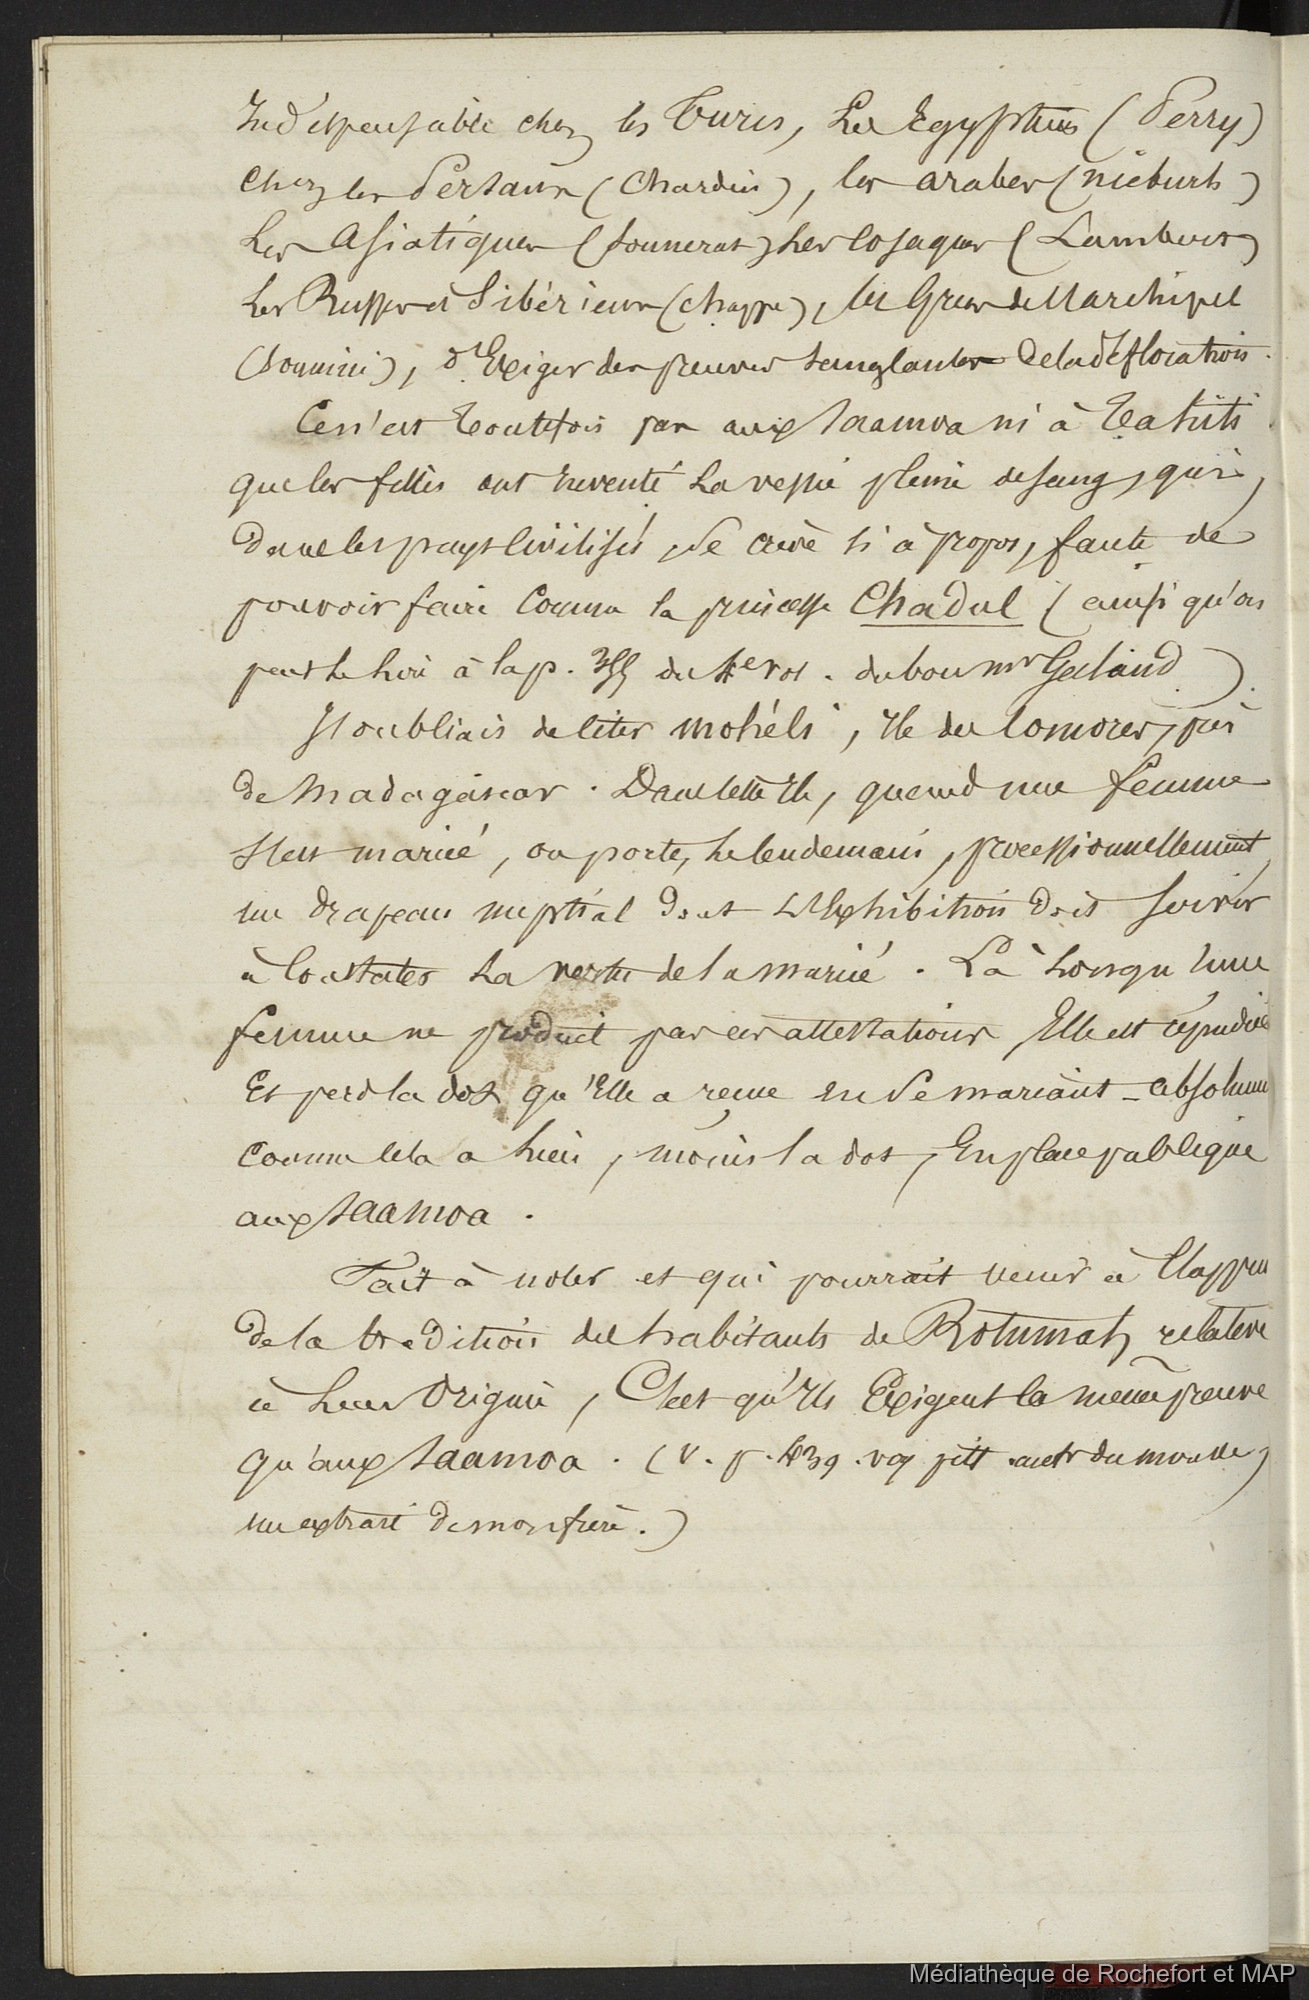 Indispensable chez les Turcs, Les Egyptiens (Perry)
Chez les Persans (Chardin), les arabes (nieburh)
Les Asiatiques (Sonnerat) Les Cosaques (Lambert)
Les Russes et Sibériens (Chappe), les Grecs de l'archipel
(Sonnini), d'Exiger des preuves sanglantes de la défloration.
Ce n'est toutefois pas aux Saamoa ni à Tahiti
que les filles ont inventé La vessie pleine de sang, qui,
dans les pays Civilisés, se crève si à propos, faute de
pouvoir faire Comme la princesse Chadul (ainsi qu'on
peut le lire à la p. du 4e vol. du bon mr Galland).
J'oubliais de Citer Mohéli, Ile des Comores, près
de Madagascar. Dans Cette Ile, quand une femme
s'est mariée, on porte, le lendemain, processionnellement,
un drapeau nuptial dont L'Exhibition doit servir
à Constater La vertu de la mariée. Là Lorsqu'une
femme ne produit pas ces attestations Elle est répudiée
Et perd la dot qu'Elle a reçue en se mariant _ absolumt
Comme Cela a Lieu, moins la dot, En place publique
aux Saamoa.
Fait à noter et qui pourrait venir à l'appui
de la tradition des habitants de Rotumah, relative
à Leur Origine, C'est qu'Ils Exigent la même preuve
qu'aux Saamoa. (v. p. 439. voy pitt. autr du monde,
un extrait de mon frère.)
Médiathèque de Rochefort et MAP